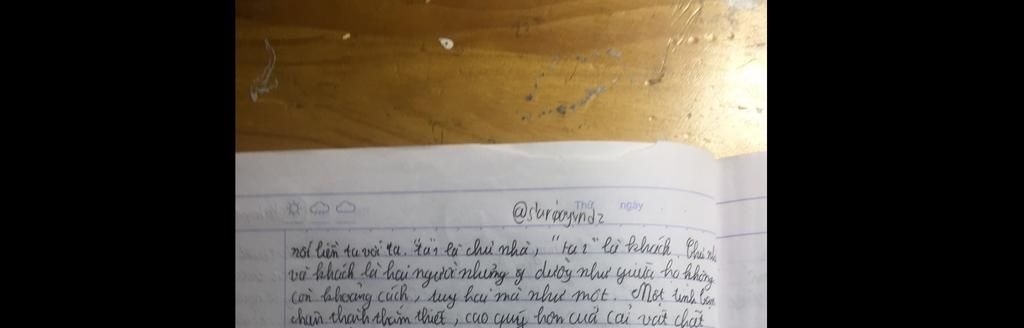 Thứ ngày
nối liền ta với ta. "ta1 là chủ nhà, "ta2" là khách. Chủ nhà
và khách là hai người nhưng dường như giữa họ không
còn khoảng cách, tuy hai mà như một. Một tình bạn
chân thành thắm thiết, cao quý hơn cuả cải vật chất